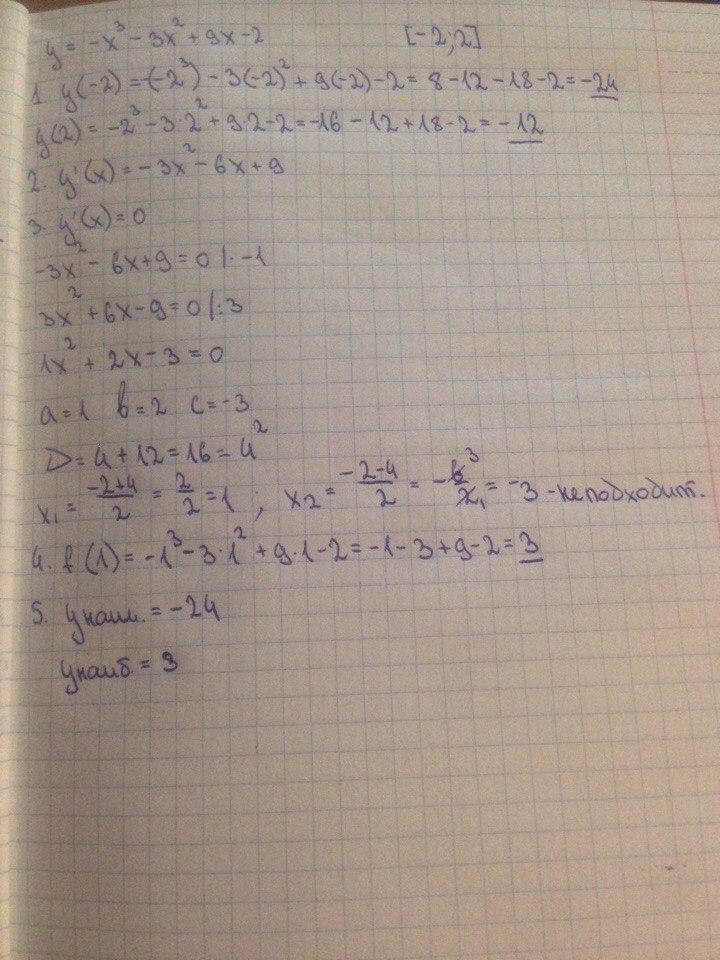 y = -x³ - 3x² + 9x - 2 [-2;2]
1. y(-2) = (-2³) - 3(-2)² + 9(-2) - 2 = 8 - 12 - 18 - 2 = -24
y(2) = -2³ - 3·2² + 9·2 - 2 = -16 - 12 + 18 - 2 = -12
2. y'(x) = -3x² - 6x + 9
3. y'(x) = 0
-3x² - 6x + 9 = 0 |· -1
3x² + 6x - 9 = 0 |:3
1x² + 2x - 3 = 0
a = 1 b = 2 c = -3
D = 4 + 12 = 16 = 4²
x₁ = (-2+4)/2 = 2/2 = 1 ; x₂ = (-2-4)/2 = -6³/2₁ = -3 - не подходит.
4. f(1) = -1³ - 3·1² + 9·1 - 2 = -1 - 3 + 9 - 2 = 3
5. yнаим. = -24
yнаиб. = 3